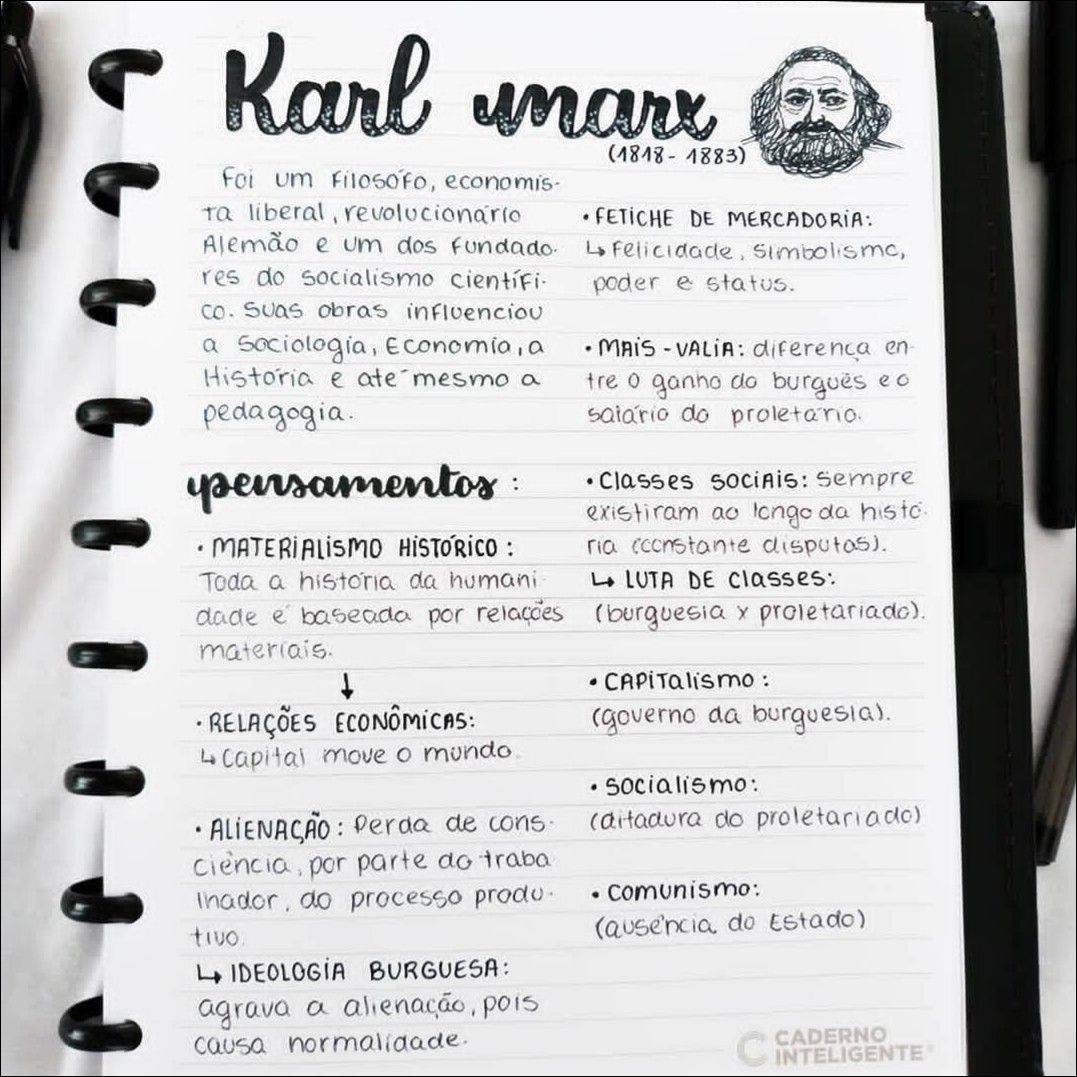 Karl Marx
(1818 - 1883)
Foi um Filosófo, economis-
ta liberal, revolucionário
Alemão e um dos fundado-
res do socialismo científi-
co. Suas obras influenciou
a Sociologia, Economia, a
História e até mesmo a
pedagogia.
pensamentos:
• MATERIALISMO HISTÓRICO:
Toda a história da humani-
dade é baseada por relações
materiais.
↓
• RELAÇÕES ECONÔMICAS:
↳ Capital move o mundo.
• ALIENAÇÃO: Perda de cons-
ciência, por parte do traba
lhador, do processo produ-
tivo.
↳ IDEOLOGIA BURGUESA:
agrava a alienação, pois
causa normalidade.
• FETICHE DE MERCADORIA:
↳ Felicidade, Simbolismo,
poder e status.
• MAIS-VALIA: diferença en-
tre o ganho do burguês e o
salário do proletário.
• Classes sociais: Sempre
existiram ao longo da histó-
ria (constante disputas).
↳ LUTA DE Classes:
(burguesia x proletariado).
• CAPITALISMO:
(governo da burguesia).
• SOCIALISMO:
(ditadura do proletariado)
• COMUNISMO:
(ausência do Estado)
CADERNO
INTELIGENTE®